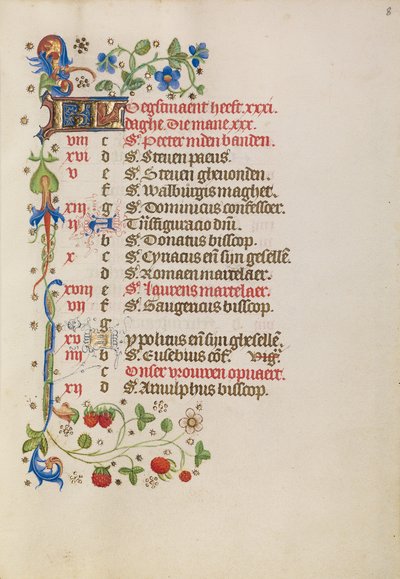 8
KL Oegstmaent heeft .xxxi.
daghe. Die mane .xxx.
viii c S. Peeter inden banden.
xvi d S. Steven paeus.
v e S. Steven ghevonden.
f S. Walburgis maghet.
xiii g S. Dominicus confessoer.
ii A Tn̄sfiguracio dn̄i.
b S. Donatus bisscop.
x c S. Cyriacus eñ sijn gesellē.
d S. Romaen martelaer.
xviii e S. Laurens martelaer.
vii f S. Gaugericus bisscop.
g
xv A ypolitus eñ sijn ghesellē.
iiii b S. Eusebius cōf.
c Onser vrouwen opvaert.
xii d S. Arnulphus bisscop.